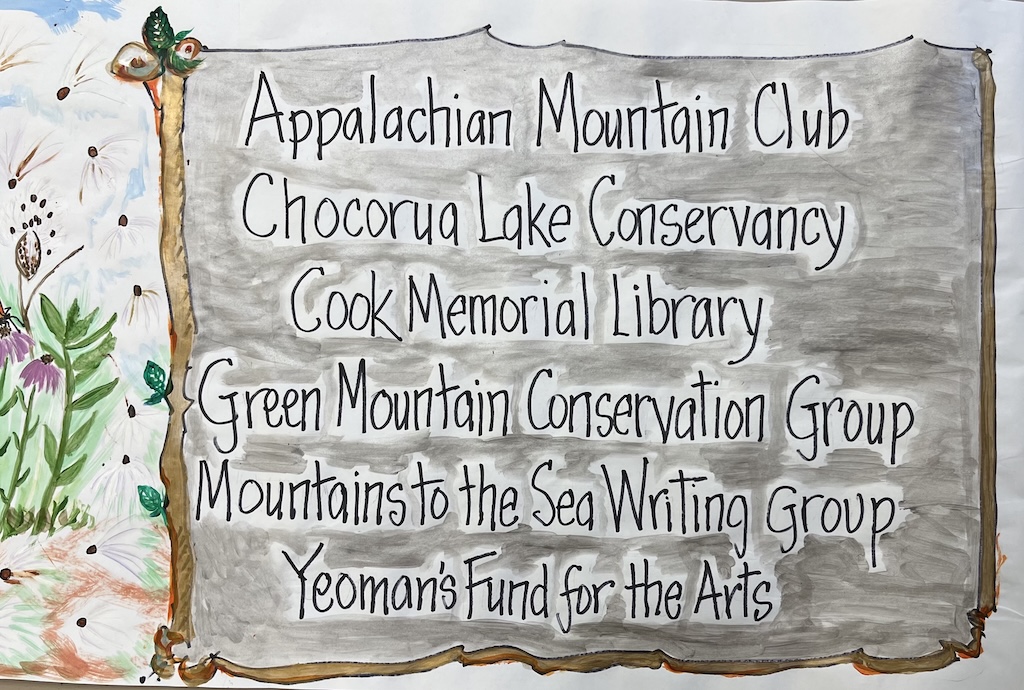 Appalachian Mountain Club
Chocorua Lake Conservancy
Cook Memorial Library
Green Mountain Conservation Group
Mountains to the Sea Writing Group
Yeoman's Fund for the Arts